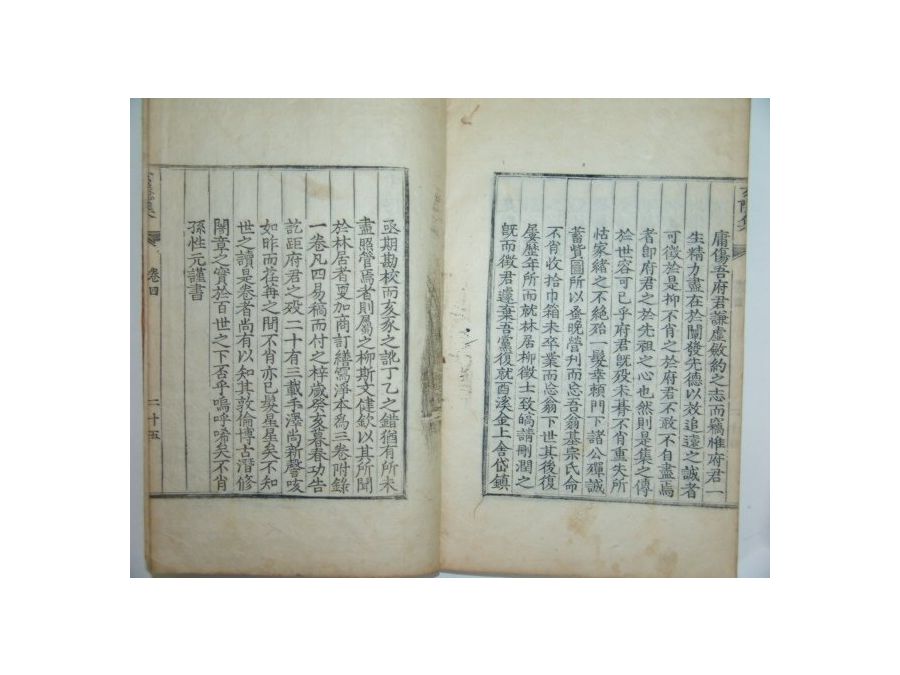 庸傷吾府君謙虛敏約之志而竊惟府君一
生精力盡在於闡發先德以效追遠之誠者
可徵於是柳不肖之於府君不敢不自盡焉
者卽府君之於先祖之心也然則是集之傳
於世容可已乎府君旣歿未朞不肖重失所
怙家緖之不絶殆一髮幸賴門下諸公殫誠
蓄貲圖所以登晩營刊而忘吾翁基宗氏命
不肖收拾巾箱未卒業而忘翁下世其後復
屢歷年所而就林居柳徵士致皜請刪潤之
旣而徵君遽棄吾黨復就酉溪金上舍岱鎭
亟期勘校而亥豕之訛丁乙之錯猶有所未
盡照管焉者則屬之柳斯文健欽以其所聞
於林居者更加商訂繕寫淨本爲三卷附錄
一卷凡四易稿而付之梓歲癸亥暮春功告
訖距府君之歿二十有三載手澤尙新謦咳
如昨而荏苒之間不肖亦已髮星星矣不知
世之讀是卷者尙有以知其敦倫博古潛修
闇章之實於百世之下否乎嗚呼唏矣不肖
孫性元謹書
卷四
二十五